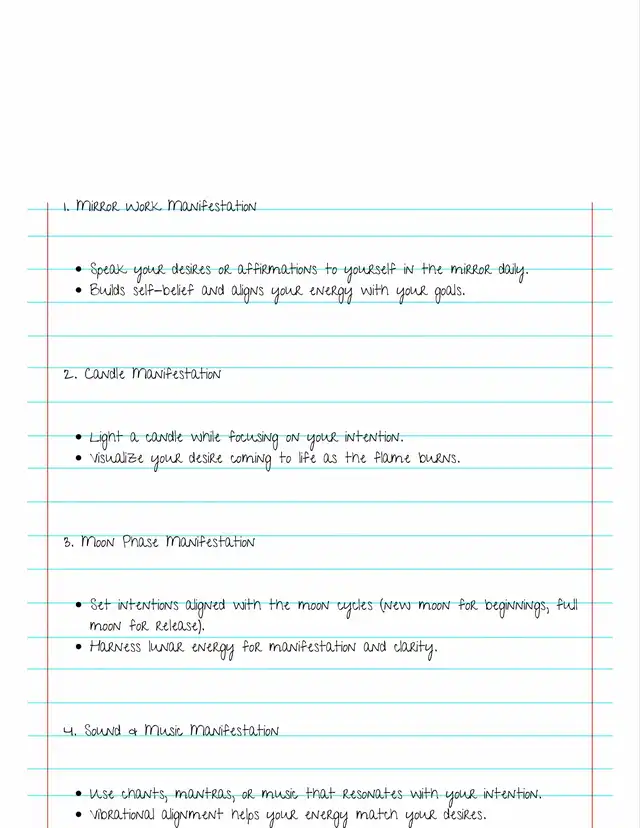 1. Mirror Work Manifestation
• Speak your desires or affirmations to yourself in the mirror daily.
• Builds self-belief and aligns your energy with your goals.
2. Candle Manifestation
• Light a candle while focusing on your intention.
• Visualize your desire coming to life as the flame burns.
3. Moon Phase Manifestation
• Set intentions aligned with the moon cycles (new moon for beginnings, full
moon for release).
• Harness lunar energy for manifestation and clarity.
4. Sound & Music Manifestation
• Use chants, mantras, or music that resonates with your intention.
• Vibrational alignment helps your energy match your desires.